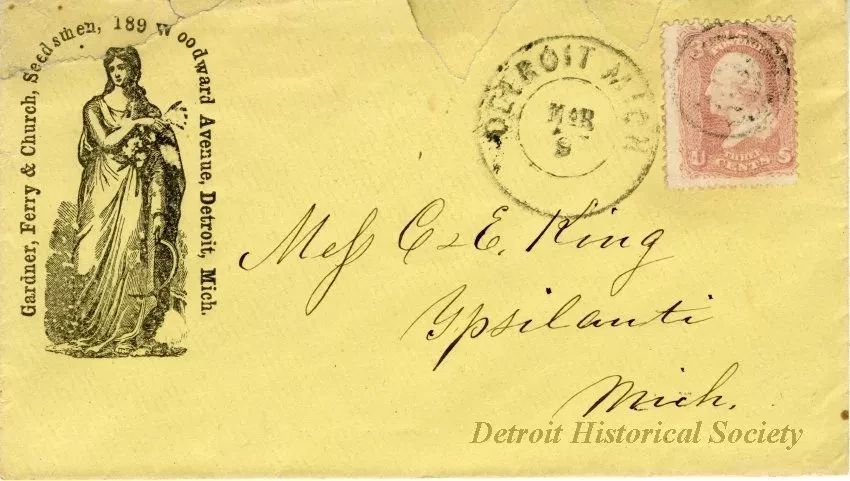 Gardner, Ferry & Church, Seedsmen, 189 Woodward Avenue, Detroit, Mich.
DETROIT MICH
MAR
9
U THREE S
CENTS
Mess C & E. King
Ypsilanti
Mich.
Detroit Historical Society